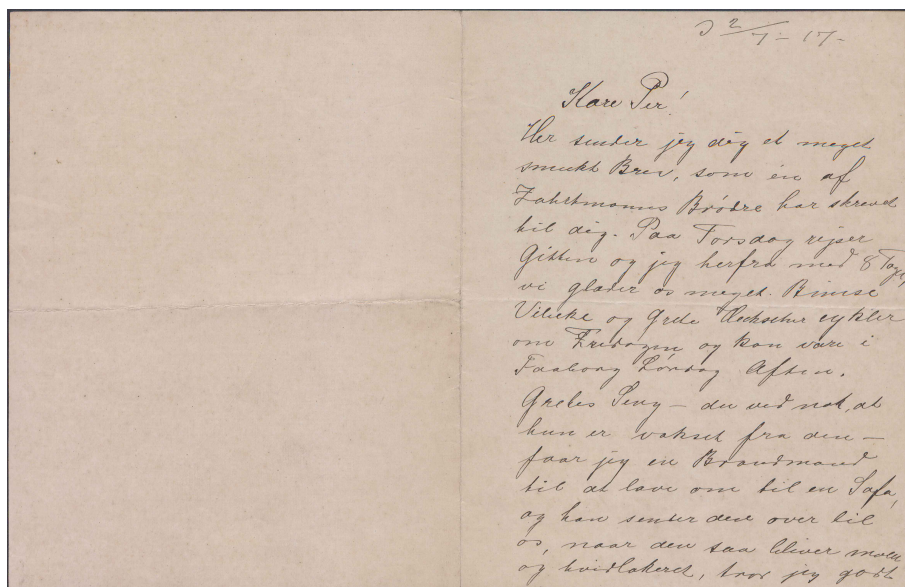 D 2/7 - 17.
Kære Per!
Her sender jeg dig et meget
smukt Brev, som én af
Zahrtmanns Brødre har skrevet
til dig. Paa Torsdag rejser
Gitten og jeg herfra med 8 Toget,
vi glæder os meget. Bimse
Vibeke og Grete Heckscher cykler
om Fredagen og kan være i
Faaborg Lørdag Aften.
Gretes Seng – du ved nok, at
hun er vokset fra den –
faar jeg en Brandmand
til at lave om til en Sofa,
og han sender den over til
os, naar den saa bliver
og hvidlakeret, tror jeg godt